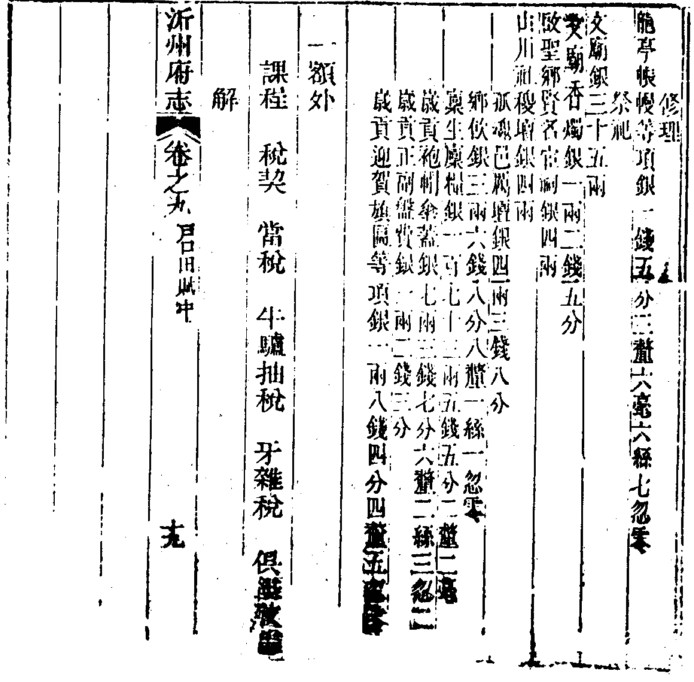 修理
龍亭帳幔等項銀一錢五分三釐六毫六絲七忽零
祭祀
文廟銀三十五兩
文廟香燭銀一兩二錢五分
啟聖鄉賢名宦祠銀四兩
山川社稷壇銀四兩
孤魂邑厲壇銀四兩三錢八分
鄉飲銀三兩六錢八分八釐一絲一忽零
廩生廩糧銀一百七十三兩五錢五分二釐二毫
歲貢袍帽傘蓋銀七兩三錢七分六釐二絲三忽二
歲貢正副盤費銀一兩二錢三分
歲貢迎賀旗匾等項銀一兩八錢四分四釐五
一額外
課程 稅契 當稅 牛驢抽稅 牙雜稅 俱
解
沂州府志 卷之九 田賦 十九